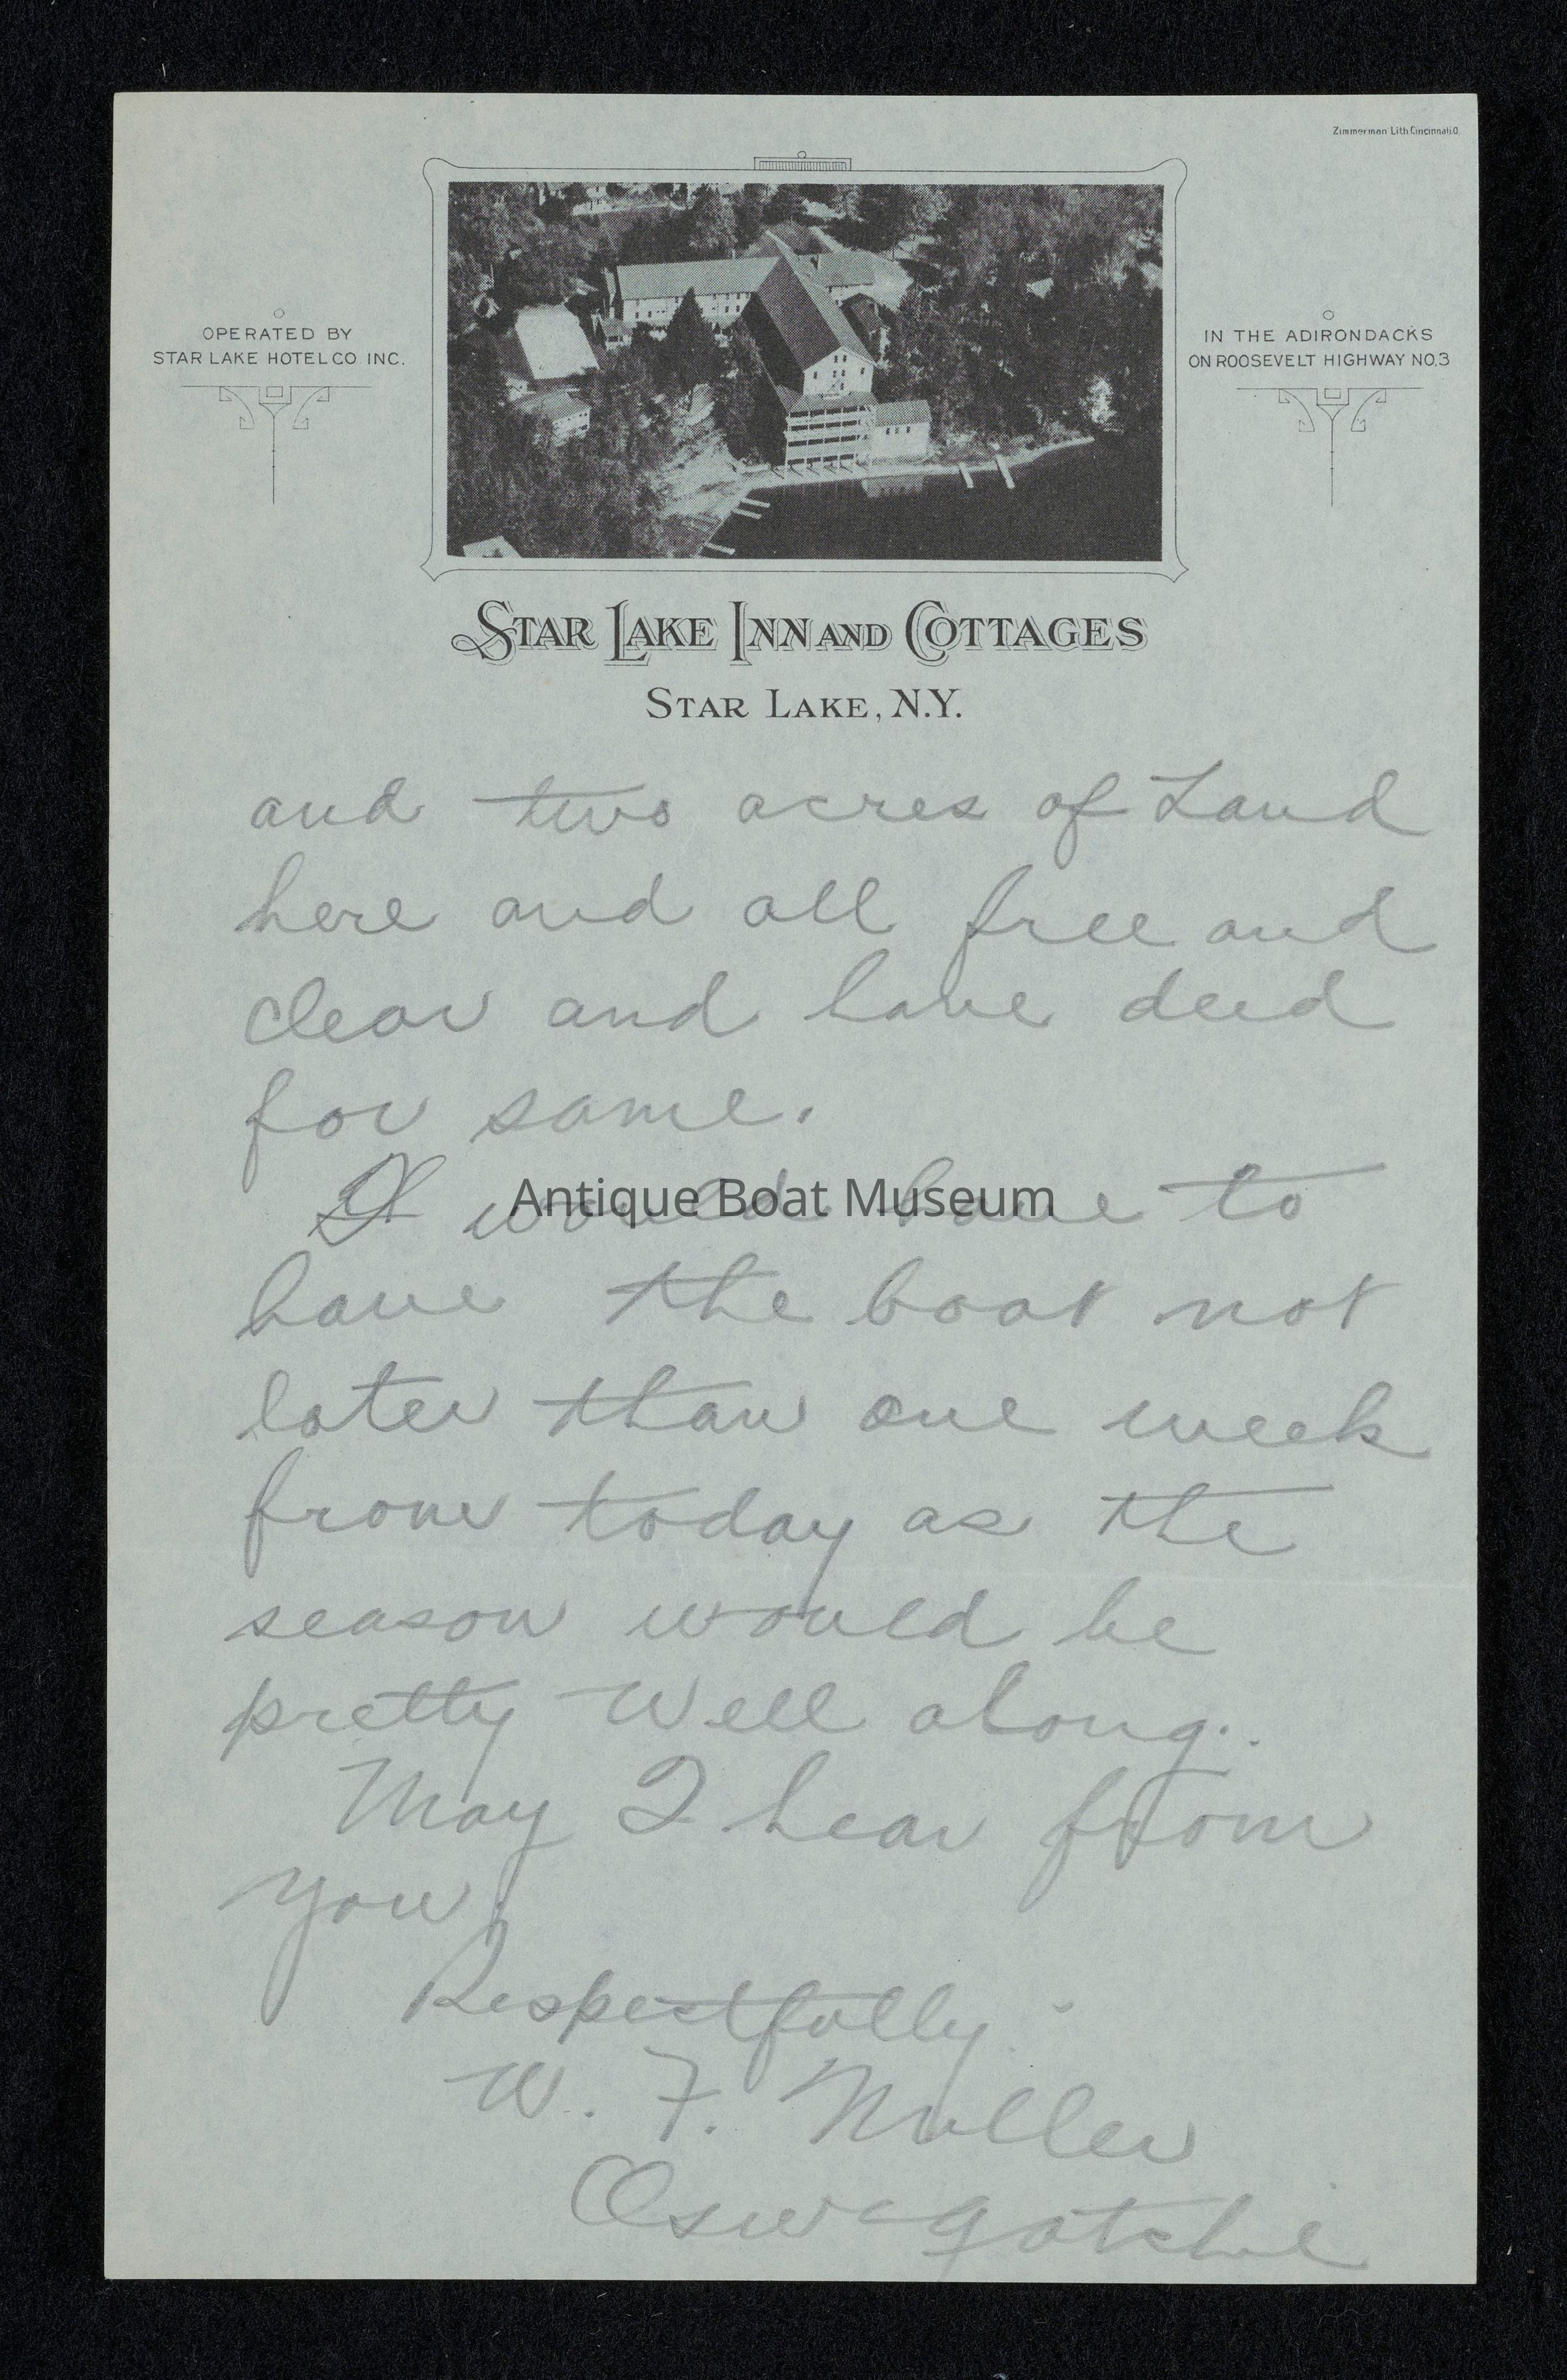 Zimmerman Lith Cincinnati, O.
OPERATED BY
STAR LAKE HOTEL CO. INC.
IN THE ADIRONDACKS
ON ROOSEVELT HIGHWAY NO. 3
STAR LAKE INN AND COTTAGES
STAR LAKE, N.Y.
and two acres of Land
here and all free and
clear and have deed
for same.
I would have to
Antique Boat Museum
have the boat not
later than one week
from today as the
season would be
pretty Well along.
May I hear from
you,
Respectfully
W. F. Muller
Oswegatchie